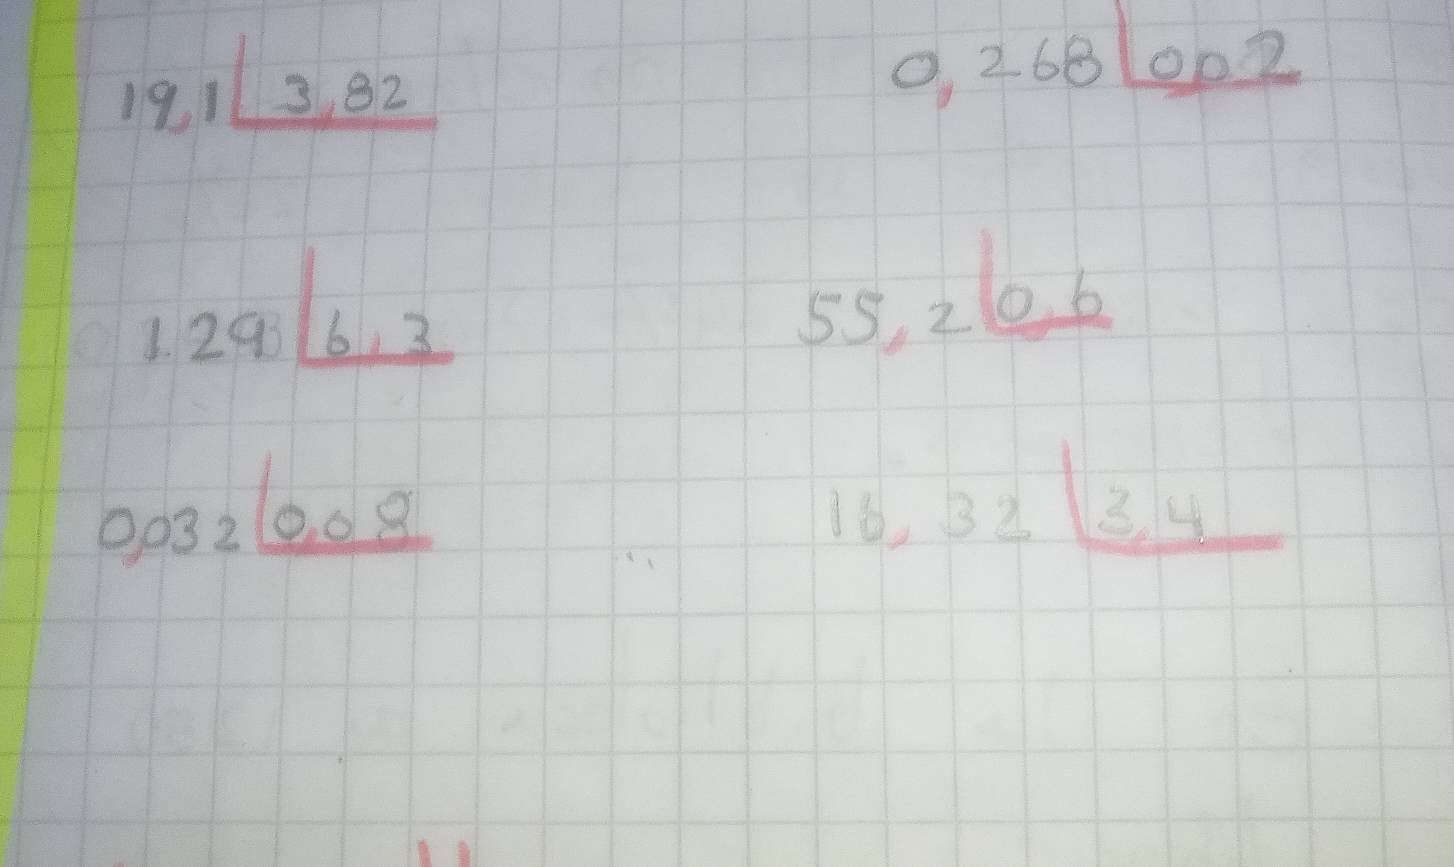 19,1 3,82
0,268 002
1.29 6,3
55,2 0,6
0,032 0,08
16,32 3,4